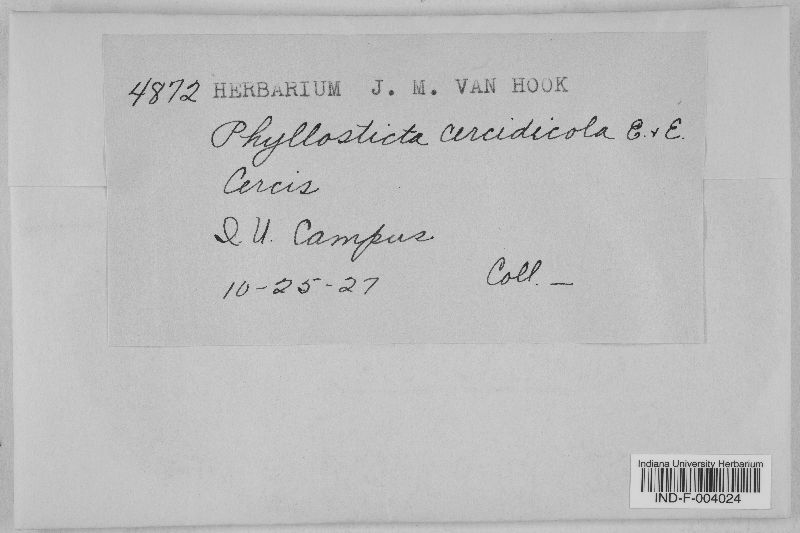 4872 HERBARIUM J. M. VAN HOOK
Phyllosticta cercidicola E. & E.
Cercis
I. U. Campus
10-25-27 Coll. —
Indiana University Herbarium
IND-F-004024